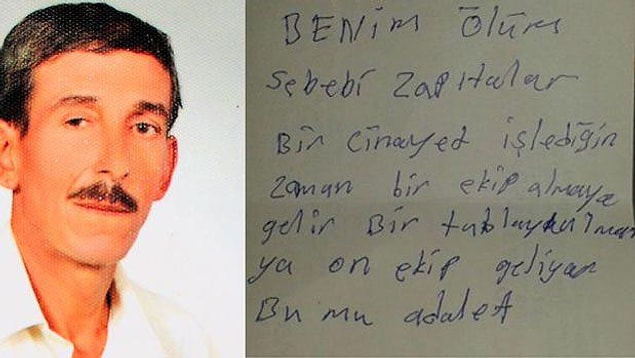 BENİM ÖLÜM
sebebi zapıtalar
Bir Cinayed işlediğin
zaman bir ekip almaya
gelir Bir tablaykulmar
ya on ekip geliyar
Bu mu adalet